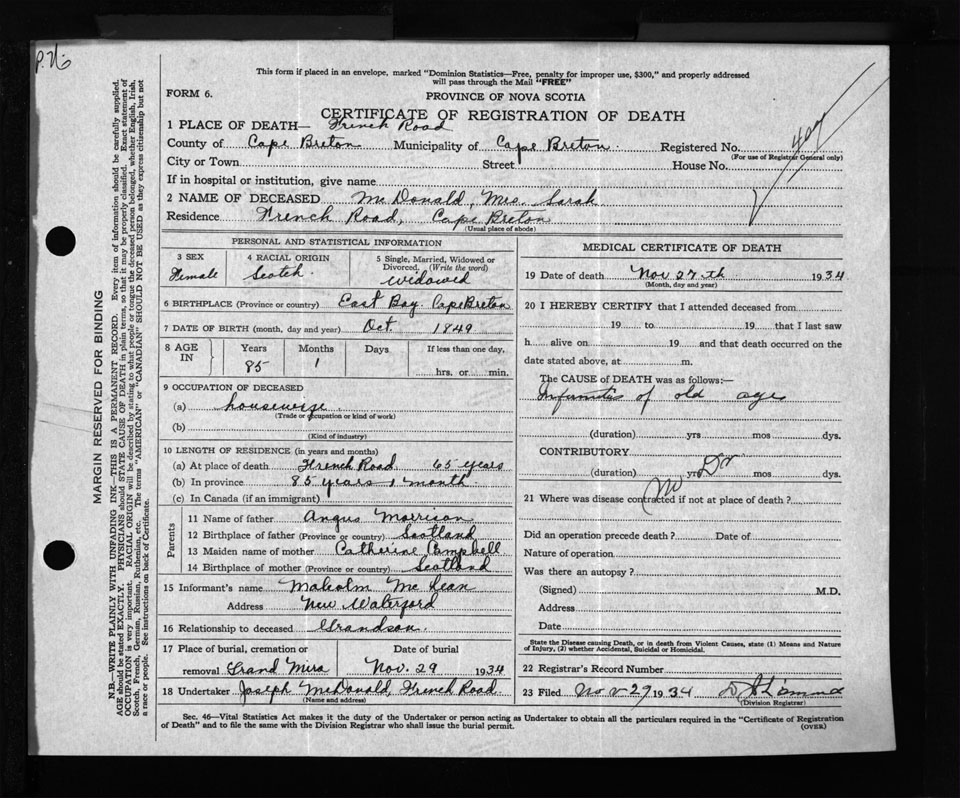 P. 76
This form if placed in an envelope, marked "Dominion Statistics—Free, penalty for improper use, $300," and properly addressed
will pass through the Mail "FREE"
FORM 6.
PROVINCE OF NOVA SCOTIA
CERTIFICATE OF REGISTRATION OF DEATH
1 PLACE OF DEATH— French Road
County of Cape Breton Municipality of Cape Breton. Registered No.
(For use of Registrar General only)
City or Town Street House No.
If in hospital or institution, give name
2 NAME OF DECEASED McDonald, Mrs. Sarah
Residence French Road, Cape Breton
(Usual place of abode)
PERSONAL AND STATISTICAL INFORMATION
3 SEX Female
4 RACIAL ORIGIN Scotch
5 Single, Married, Widowed or
Divorced. (Write the word)
widowed
6 BIRTHPLACE (Province or country) East Bay. Cape Breton
7 DATE OF BIRTH (month, day and year) Oct. 1849
8 AGE IN Years Months Days If less than one day,
85 1 hrs. or min.
9 OCCUPATION OF DECEASED
(a) housewife
(Trade or occupation or kind of work)
(b)
(Kind of industry)
10 LENGTH OF RESIDENCE (in years and months)
(a) At place of death French Road 65 years
(b) In province 85 years 1 month.
(c) In Canada (if an immigrant)
Parents
11 Name of father Angus Morrison
12 Birthplace of father (Province or country) Scotland
13 Maiden name of mother Catherine Campbell
14 Birthplace of mother (Province or country) Scotland
15 Informant's name Malcolm McLean
Address New Waterford
16 Relationship to deceased Grandson.
17 Place of burial, cremation or Date of burial
removal Grand Mira Nov. 29 1934
18 Undertaker Joseph McDonald, French Road
(Name and address)
MEDICAL CERTIFICATE OF DEATH
19 Date of death Nov 27th 1934
(Month, day and year)
20 I HEREBY CERTIFY that I attended deceased from
19 to 19 that I last saw
h alive on 19 and that death occurred on the
date stated above, at m.
The CAUSE of DEATH was as follows:—
Infirmities of old age
(duration) yrs mos dys.
CONTRIBUTORY
(duration) yrs mos dys.
No Dr
21 Where was disease contracted if not at place of death?
Did an operation precede death? Date of
Nature of operation
Was there an autopsy?
(Signed) M.D.
Address
Date
State the Disease causing Death, or in death from Violent Causes, state (1) Means and Nature
of Injury, (2) whether Accidental, Suicidal or Homicidal.
22 Registrar's Record Number
23 Filed Nov 29 1934
(Division Registrar)
Sec. 46—Vital Statistics Act makes it the duty of the Undertaker or person acting as Undertaker to obtain all the particulars required in the "Certificate of Registration
of Death" and to file the same with the Division Registrar who shall issue the burial permit.
(OVER)
MARGIN RESERVED FOR BINDING
N.B.—WRITE PLAINLY WITH UNFADING INK—THIS IS A PERMANENT RECORD. Every item of information should be carefully supplied.
AGE should be stated EXACTLY. PHYSICIANS should STATE CAUSE OF DEATH in plain terms, so that it may be properly classified. Exact statement of
OCCUPATION is very important. RACIAL ORIGIN will be described by stating to what people or tongue the deceased person belonged, whether English, Irish,
Scotch, French, German, Russian, Ruthenian, etc. The terms "AMERICAN" or "CANADIAN" SHOULD NOT BE USED as they express citizenship but not
a race or people. See instructions on back of Certificate.